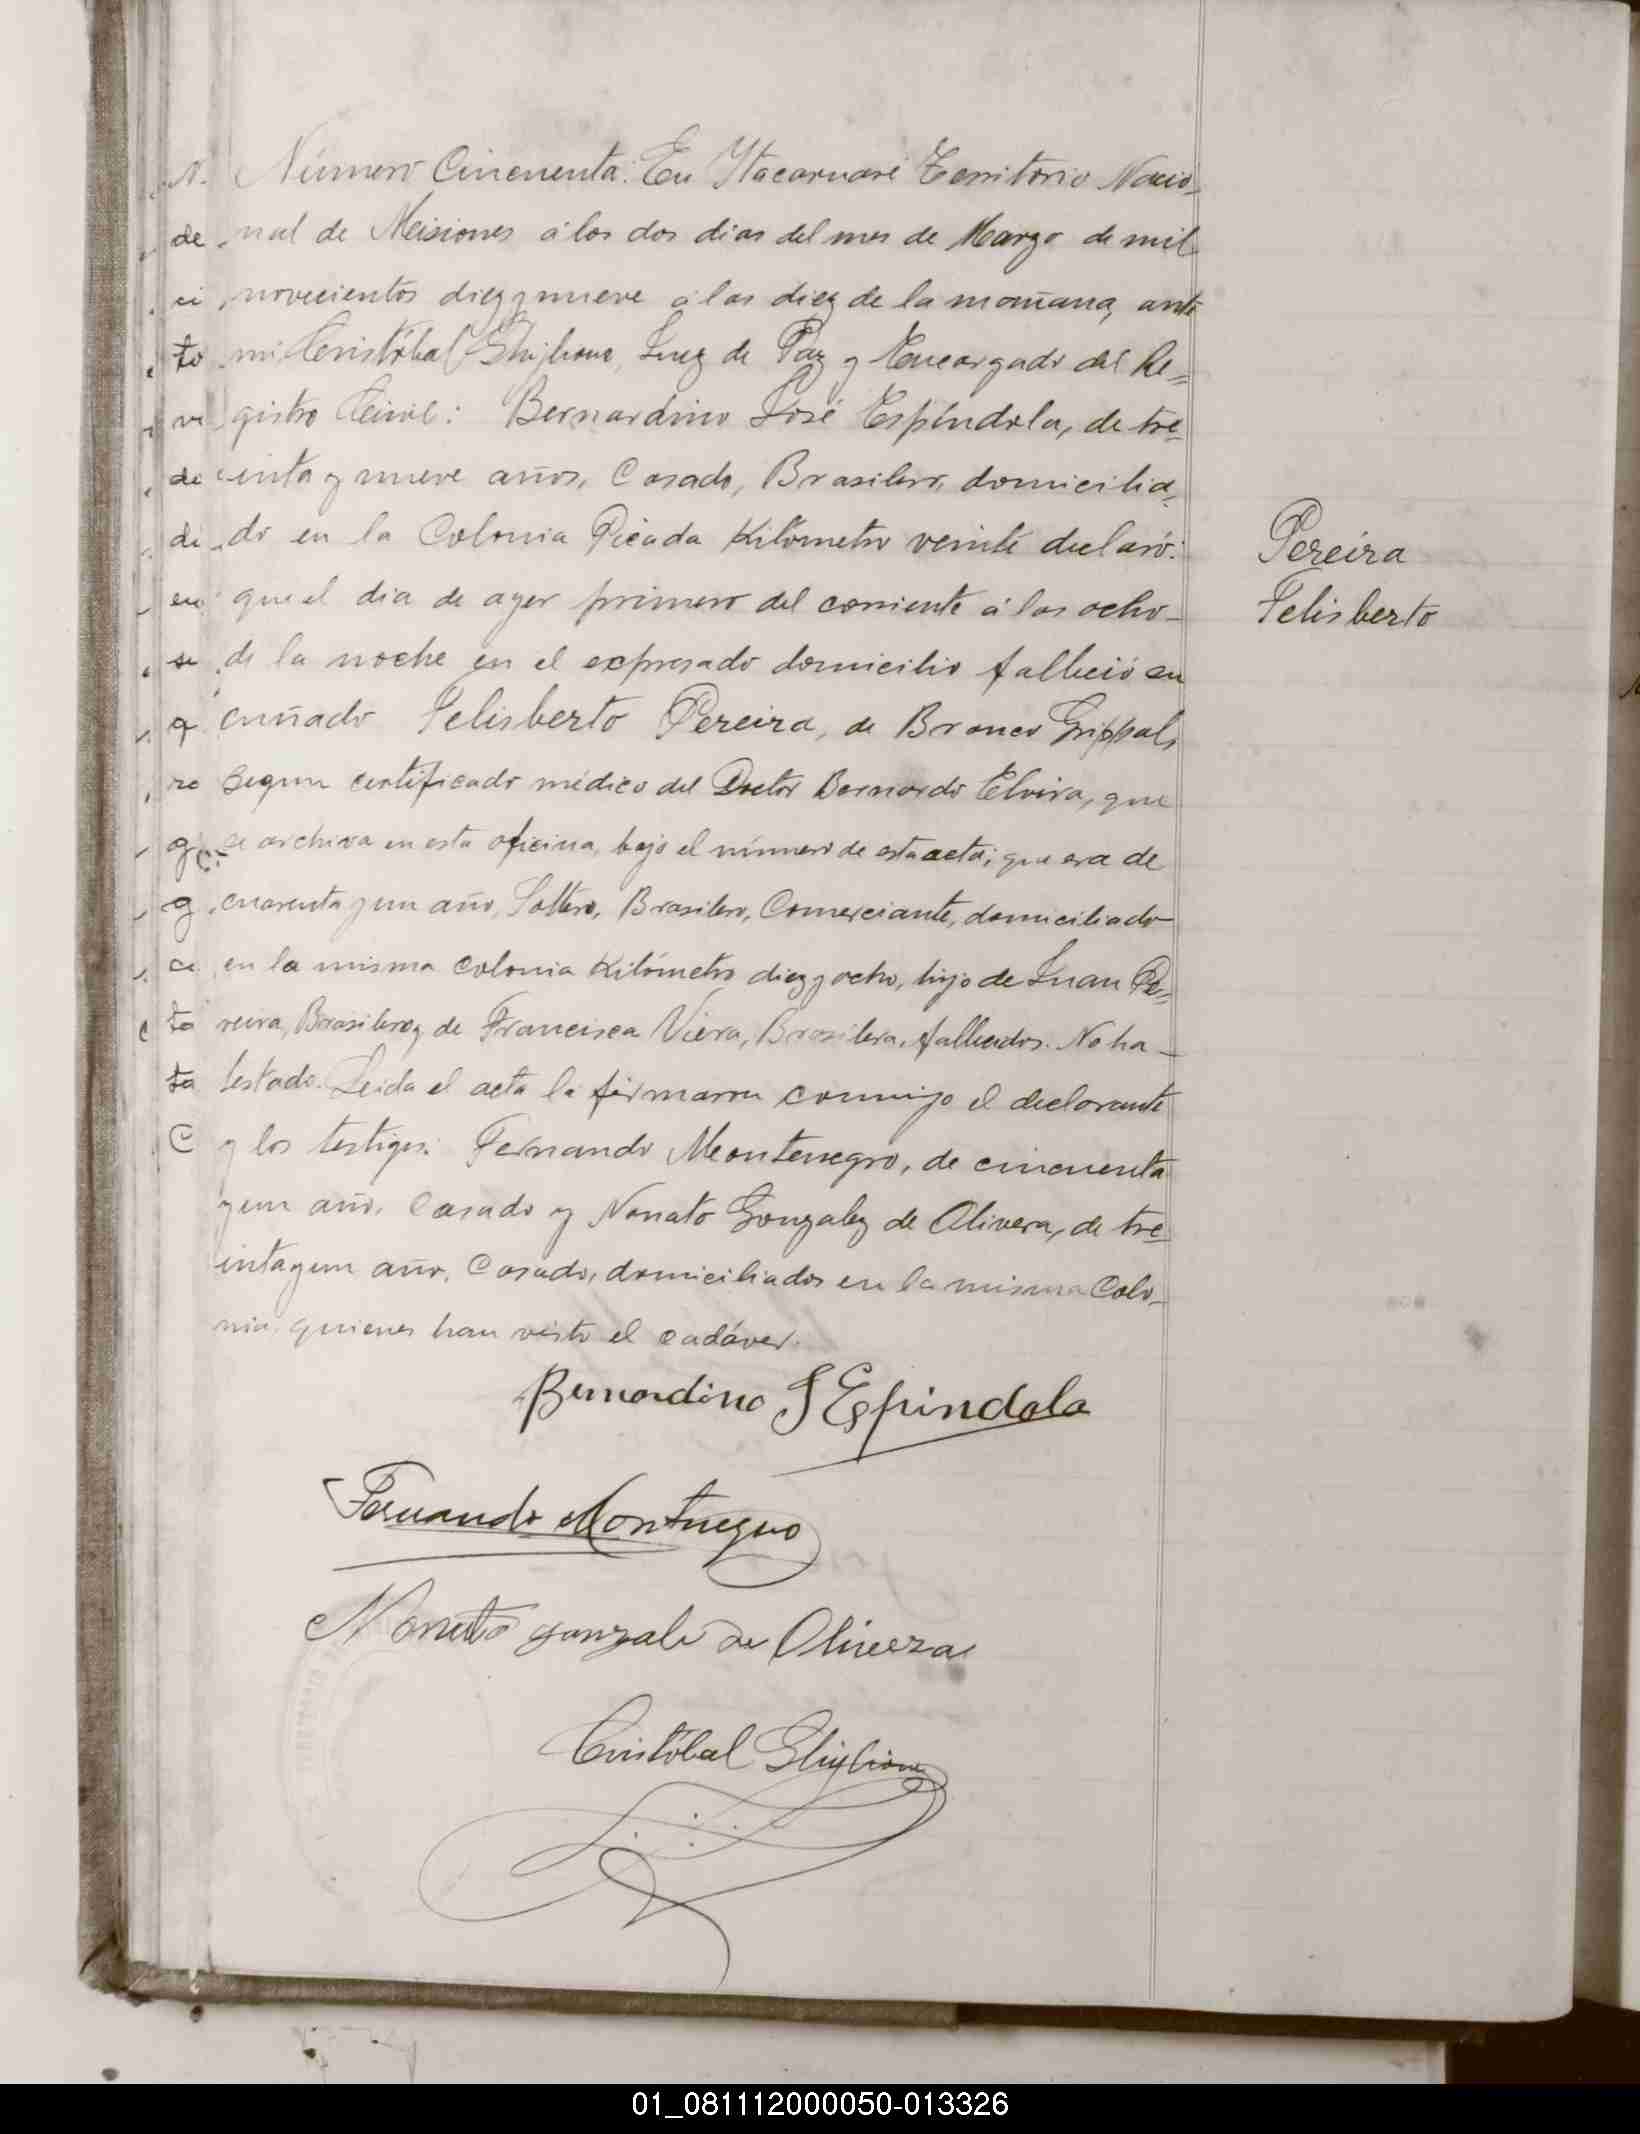 Número Cincuenta. En Itacaruaré Territorio Nacio-
nal de Misiones á los dos dias del mes de Marzo de mil
novecientos diez y nueve á las diez de la mañana, ante
mi Cristóbal Ghiglione, Juez de Paz y Encargado del Re=
gistro Civil: Bernardino José Espíndola, de tre-
inta y nueve años, Casado, Brasilero, domicilia-
do en la Colonia Picada Kilómetro veinte declaró:
que el dia de ayer primero del corriente á las ocho-
de la noche en el expresado domicilio falleció su
cuñado Felisberto Pereira, de Bronco Grippal,
segun certificado médico del Doctor Bernardo Elvira, que
se archiva en esta oficina, bajo el número de esta acta; que era de
cuarenta y un año, Soltero, Brasilero, Comerciante, domiciliado
en la misma colonia Kilómetro diez y ocho, hijo de Juan Pe=
reira, Brasilero y de Francisca Viera, Brasilera, fallecidos. No ha-
testado. Leida el acta la firmaron conmigo el declarante
y los testigos: Fernando Montenegro, de cincuenta
y un año, Casado y Nonato Gonzalez de Olivera, de tre-
inta y un año, Casado, domiciliados en la misma Colo-
nia, quienes han visto el cadáver.
Pereira
Felisberto
Bernardino J Espindola
Fernando Montenegro
Nonato gonzale de Olivera
Cristóbal Ghiglione
N.
de
ci
to
ve
de
di
en
se
q
re
g
g
ce
ta
ta
C
01_081112000050-013326